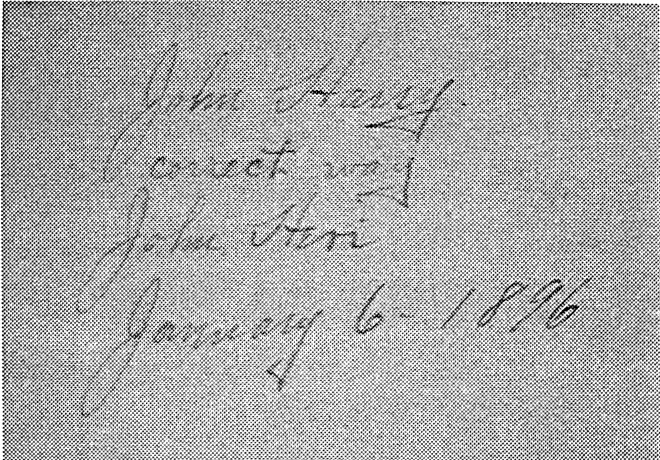 John Harry.
correct way
John Heri
January 6 - 1896